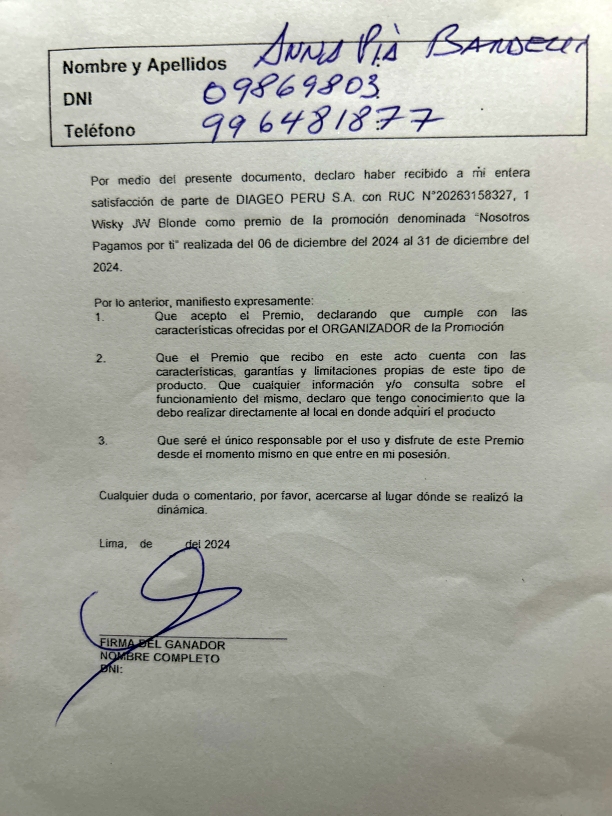 Nombre y Apellidos Anna Pià
DNI 09869803
Teléfono 996481877
Por medio del presente documento, declaro haber recibido a mi entera
satisfacción de parte de DIAGEO PERU S.A. con RUC N°20263158327, 1
Wisky JW Blonde como premio de la promoción denominada "Nosotros
Pagamos por ti" realizada del 06 de diciembre del 2024 al 31 de diciembre del
2024.
Por lo anterior, manifiesto expresamente:
1. Que acepto el Premio, declarando que cumple con las
características ofrecidas por el ORGANIZADOR de la Promoción
2. Que el Premio que recibo en este acto cuenta con las
características, garantías y limitaciones propias de este tipo de
producto. Que cualquier información y/o consulta sobre el
funcionamiento del mismo, declaro que tengo conocimiento que la
debo realizar directamente al local en donde adquirí el producto
3. Que seré el único responsable por el uso y disfrute de este Premio
desde el momento mismo en que entre en mi posesión.
Cualquier duda o comentario, por favor, acercarse al lugar dónde se realizó la
dinámica.
Lima, de del 2024
FIRMA DEL GANADOR
NOMBRE COMPLETO
DNI: